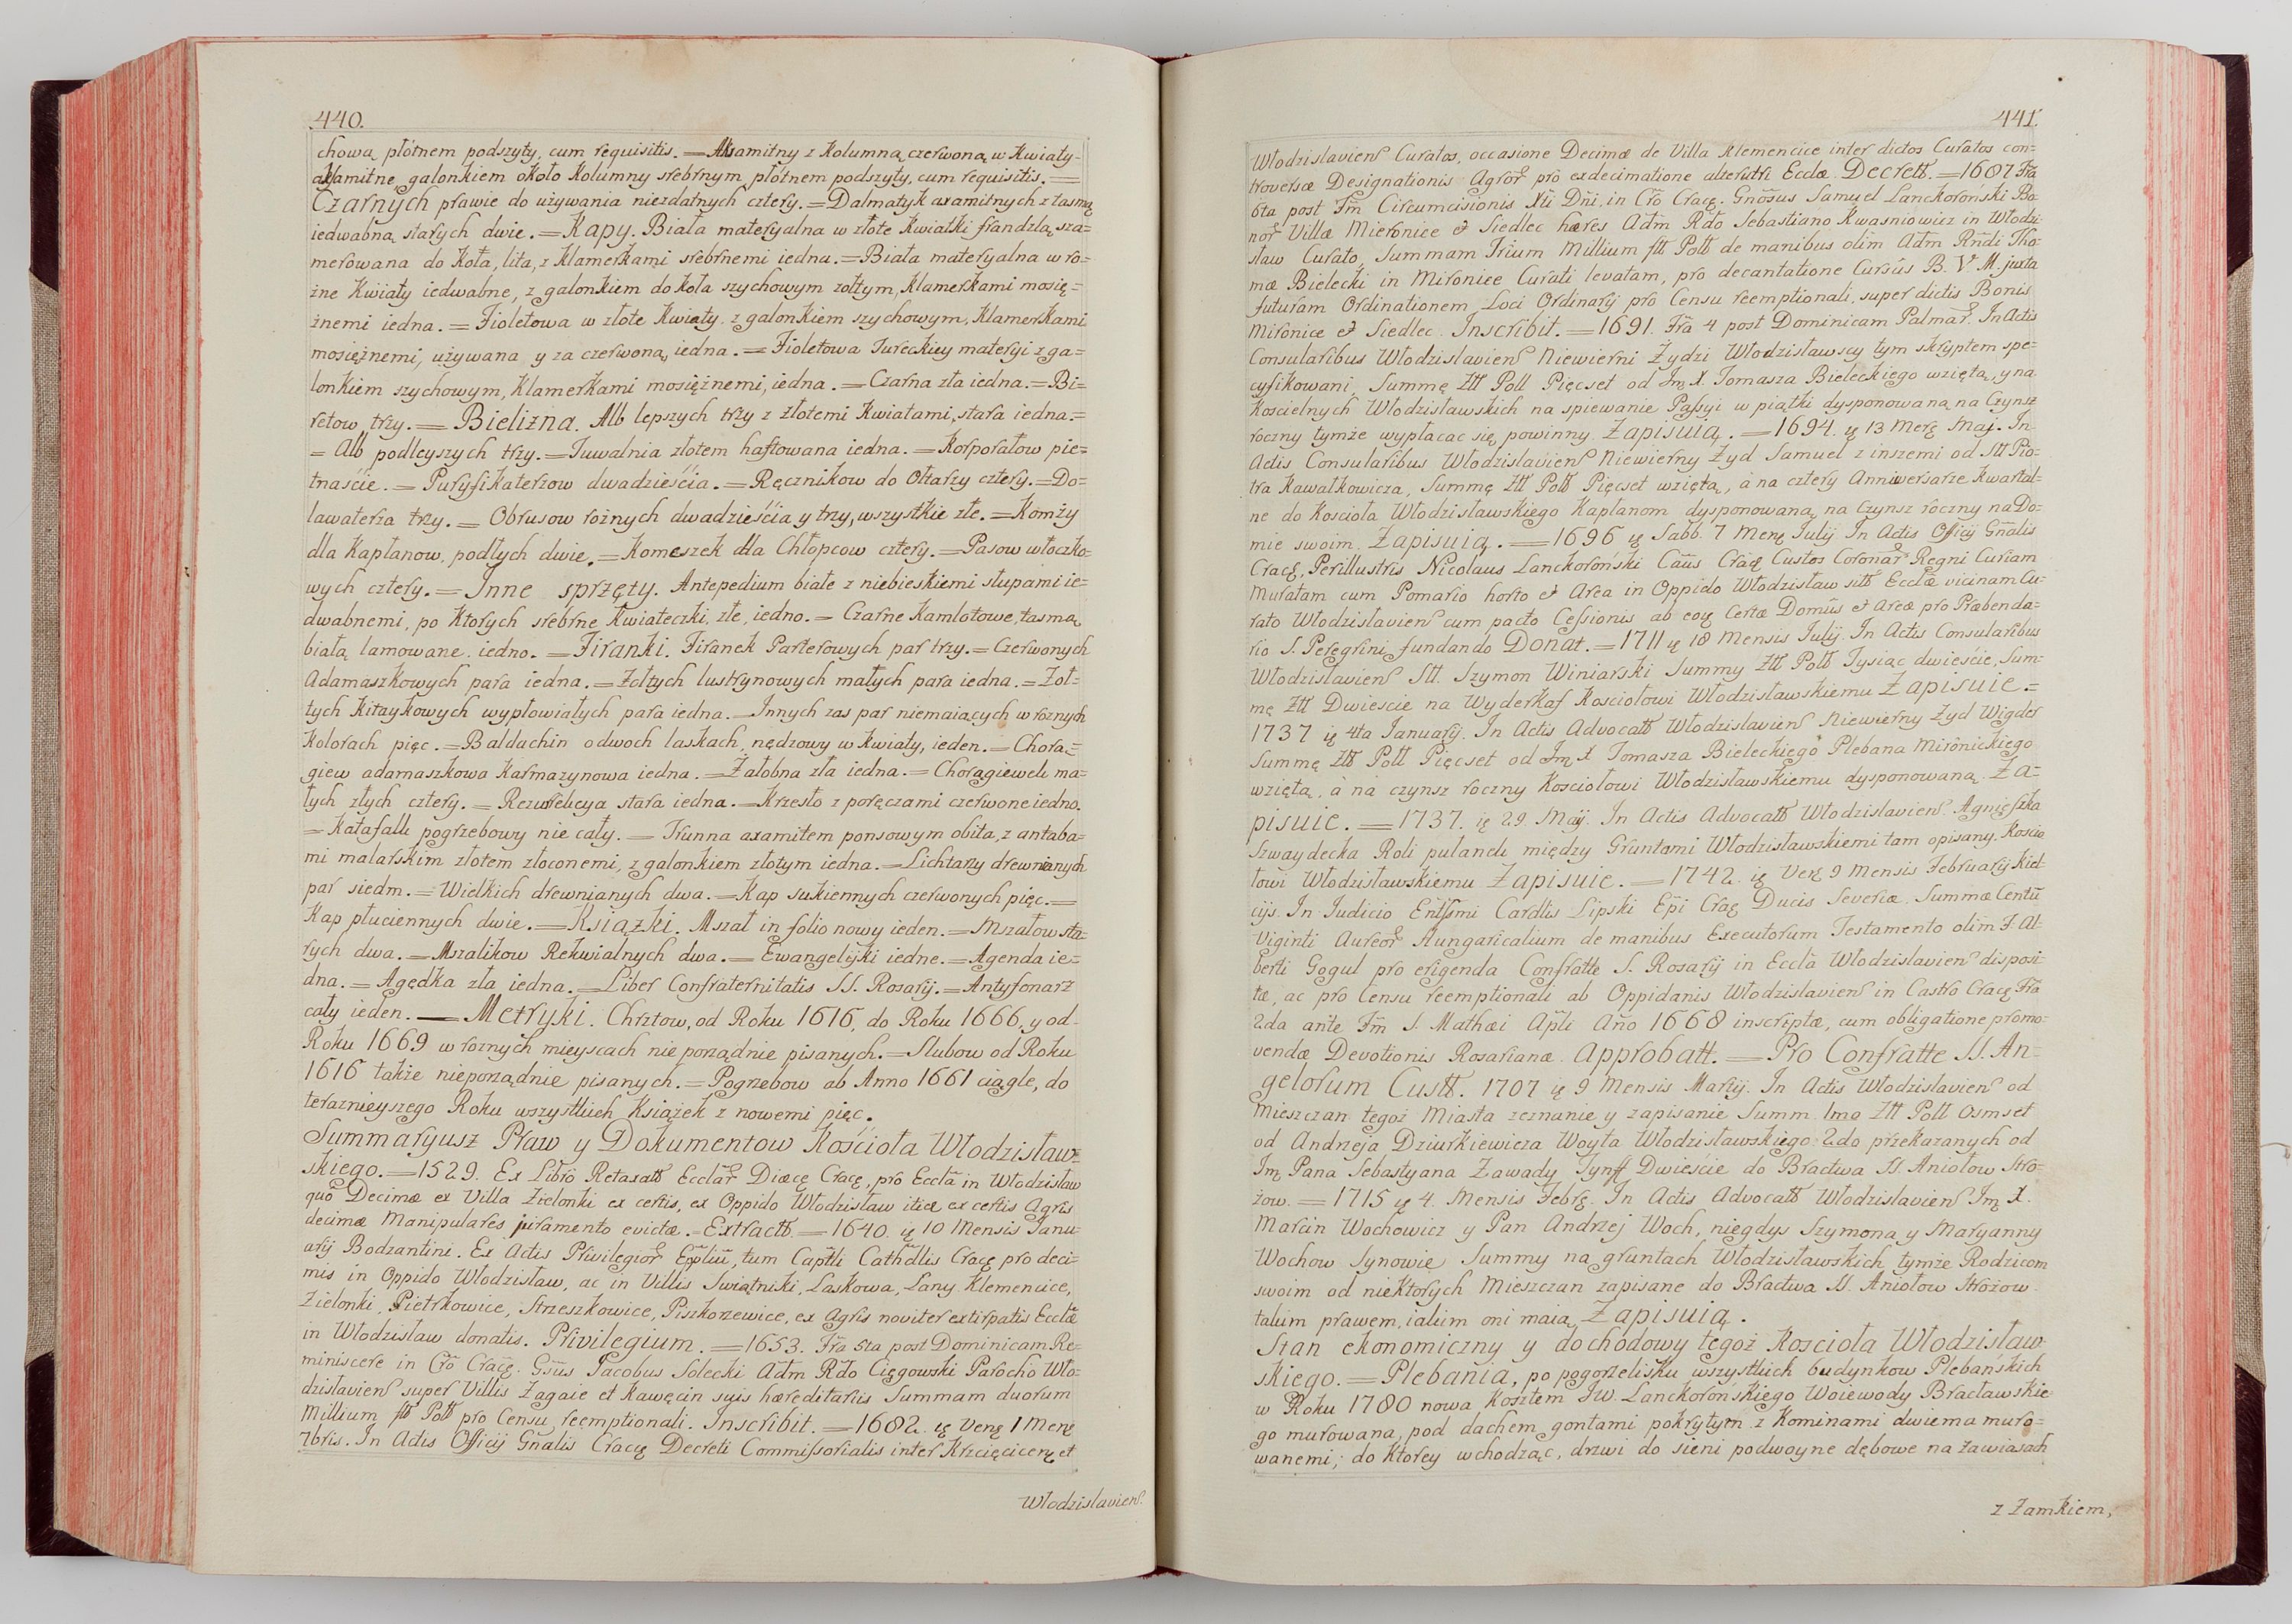 440.
chową płótnem podszyty, cum requisitis. = Axamitny z Kolumną czerwoną w Kwiaty
axamitne galonkiem około Kolumny srebrnym płótnem podszyty, cum requisitis. =
Czarnych prawie do używania niezdatnych cztery. = Dalmatyk axamitnych z tasmą
iedwabną starych dwie. = Kapy. Biała materyalna w złote Kwiatki frandzlą sza=
merowana do Koła, lita, z Klamerkami srebrnemi iedna. = Biała materyalna w ro=
żne Kwiaty iedwabne, z galonkiem do koła szychowym żołtym, Klamerkami mosię=
żnemi iedna. = Fioletowa w złote Kwiaty z galonkiem szychowym, Klamerkami
mosiężnemi, używana y za czerwoną, iedna. = Fioletowa Tureckiey materyi z ga=
lonkiem szychowym, Klamerkami mosiężnemi, iedna. = Czarna zła iedna. = Bi=
retow trzy. = Bielizna. Alb lepszych trzy z złotemi Kwiatami, stara iedna. =
= Alb podleyszych trzy. = Tuwalnia złotem haftowana iedna. = Korporałow pie=
tnaście. = Puryfikaterzow dwadzieścia. = Ręcznikow do Ołtarzy cztery. = Do=
lawaterza trzy. = Obrusow rożnych dwadzieścia y trzy, wszystkie złe. = Komży
dla Kapłanow, podłych dwie. = Komeszek dla Chłopcow cztery. = Pasow włoczko=
wych cztery. = Inne sprzęty. Antepedium białe z niebieskiemi słupami ie=
dwabnemi, po Ktorych srebrne Kwiateczki, złe, iedno. = Czarne Kamlotowe, tasmą
białą lamowane iedno. = Firanki. Firanek Parterowych par trzy. = Czerwonych
Adamaszkowych para iedna. = Żołtych lustrynowych małych para iedna. = Żoł=
tych Kitaykowych wypłowiałych para iedna. = Innych zaś par niemaiących w rożnych
Kolorach pięc. = Baldachin o dwoch laskach, nędzowy w Kwiaty, ieden. = Chorą=
giew adamaszkowa Karmazynowa iedna. = Żałobna zła iedna. = Chorągiewek ma=
łych złych cztery. = Rezurekcya stara iedna. = Krzesło z poręczami czerwone iedno.
= Katafalk pogrzebowy nie cały. = Trunna axamitem ponsowym obita, z antaba=
mi malarskim złotem złoconemi, z galonkiem złotym iedna. = Lichtarzy drewnianych
par siedm. = Wielkich drewnianych dwa. = Kap sukiennych czerwonych pięc. =
Kap płuciennych dwie. = Książki. Mszał in folio nowy ieden. = Mszałow sta=
rych dwa. = Mszalikow Rekwialnych dwa. = Ewangelijki iedne. = Agenda ie=
dna. = Agędka zła iedna. = Liber Confraternitatis SS. Rosarij. = Antyfonarz
cały ieden. = Metryki. Chrztow, od Roku 1616, do Roku 1666, y od
Roku 1669 w roznych mieyscach nie porządnie pisanych. = Slubow od Roku
1616 także nieporządnie pisanych. = Pogrzebow ab Anno 1661 ciągle, do
teraznieyszego Roku wszystkich Książek z nowemi pięc.
Summaryusz Praw y Dokumentow Kościoła Włodzisław=
skiego. = 1529. Ex Libro Retaxatt Ecclar Diæcę Cracę, pro Eccla in Włodzisław
quo Decimæ ex Villa Zielonki ex certis, ex Oppido Włodzisław itidæ ex certis Agris
decimæ Manipulares juramento evictæ. = Extractt. = 1640. ię 10 Mensis Janu=
arij Bodzantini. Ex Actis Privilegior Eppliu, tum Captli Cathdlis Cracę pro deci=
mis in Oppido Włodzisław, ac in Villis Swiątniki, Laskowa, Łany Klemencice,
Zielonki, Pietrkowice, Strzeszkowice, Piszkorzewice, ex Agris noviter extirpatis Ecclæ
in Włodzisław donatis. Privilegium. = 1653. Fra 5ta post Dominicam Re=
miniscere in Cro Cracę. Gsus Jacobus Solecki Adm Rdo Cięgowski Parocho Wło=
dzislavien super Villis Zagaie et Kawęcin suis hæreditariis Summam duorum
Millium flt Polt pro Censu reemptionali. Inscribit. = 1682. ię Venę 1 Menę
7bris. In Actis Officij Gnalis Cracę Decreti Commissorialis inter Krzcięcicenę et
Włodzislavien.
441.
Włodzislavien Curatos, occasione Decimæ de Villa Klemencice inter dictos Curatos con=
troversæ Designationis Agror pro exdecimatione alterutri Ecclæ. Decrett. = 1687 Fra
6ta post Fm Circumcisionis Xti Dni, in Cro Cracę. Gnosus Samuel Lanckoroński Bo=
nor Villæ Mieronice et Siedlec hæres Adm Rdo Sebastiano Kwasniowicz in Włodzi=
sław Curato, Summam Trium Millium flt Polt de manibus olim Adm Rndi Tho=
mæ Bielecki in Mironice Curati levatam, pro decantatione Cursus B. V. M. juxta
futuram Ordinationem Loci Ordinarij pro Censu reemptionali, super dictis Bonis
Mironice et Siedlec. Inscribit. = 1691. Fra 4 post Dominicam Palmar. In Actis
Consularibus Włodzislavien Niewierni Żydzi Włodzisławscy tym skryptem spe=
cyfikowani, Summę Złł Poll Pięcset od Jmę X. Tomasza Bieleckiego wziętą, y na
Kościelnych Włodzisławskich na spiewanie Passyi w piątki dysponowaną na Czynsz
roczny tymże wypłacac się powinny. Zapisuią. = 1694. ię 13 Merę Maj. In
Actis Consularibus Włodzislavien Niewierny Żyd Samuel z inszemi od Slt Pio=
tra Kawałkowicza, Summę Złł Polt Pięcset wziętą, a na cztery Anniwersarze Kwartal=
ne do Kościoła Włodzisławskiego Kapłanom dysponowaną na Czynsz roczny na Do=
mie swoim. Zapisuią. = 1696 ię Sabb. 7 Menę Julij In Actis Officij Gnalis
Cracę, Perillustris Nicolaus Lanckoroński Canus Cracę Custos Coronar Regni Curiam
Muratam cum Pomario horto et Area in Oppido Włodzisław sitt Ecclæ vicinam Cu=
rato Włodzislavien cum pacto Cessionis ab eoę Certæ Domus et Areæ pro Præbenda=
rio S. Peregrini fundando Donat. = 1711 ię 18 Mensis Julij. In Actis Consularibus
Włodzislavien Slt. Szymon Winiarski Summy Złł Polt Tysiąc dwieście, Sum=
mę Złł Dwiescie na Wyderkaf Kosciołowi Włodzisławskiemu Zapisuie. =
1737 ię 4ta Januarij. In Actis Advocatt Włodzislavien Niewierny Żyd Wigder
Summę Złł Polt Pięcset od Jmę X Tomasza Bieleckiego Plebana Mironickiego
wziętą, a na czynsz roczny Kosciołowi Włodzisławskiemu dysponowaną. Za=
pisuie. = 1737. ię 29 Maij. In Actis Advocatt Włodzislavien. Agnieszka
Szwaydecka Roli pulanek między Gruntami Włodzisławskiemi tam opisany. Koscio
łowi Włodzisławskiemu Zapisuie. = 1742. ię Venę 9 Mensis Februarij Kiel=
cijs. In Judicio Entssmi Cardlis Lipski Epi Cracę Ducis Severiæ, Summæ Centu
Viginti Aureor Hungaricalium de manibus Executorum Testamento olim F. Al=
berti Gogul pro erigenda Confratte S. Rosarij in Eccla Włodzislavien disposi=
tæ, ac pro Censu reemptionali ab Oppidanis Włodzislavien in Castro Cracę Fra
2da ante Fm S. Mathæi Apli Ano 1668 inscriptæ, cum obligatione promo=
vendæ Devotionis Rosarianæ. Approbatt. = Pro Confratte SS. An=
gelorum Custt. 1707 ię 9 Mensis Martij. In Actis Włodzislavien od
Mieszczan tegoż Miasta zeznanie y zapisanie Summ. 1mo Złł Polt Osmset
od Andrzeja Dziurkiewicza Woyta Włodzisławskiego: 2do przekazanych od
Jmę Pana Sebastyana Zawady Tynff Dwieście do Bractwa SS. Aniołow Stro=
żow. = 1715 ię 4. Mensis Febrę. In Actis Advocatt Włodzislavien Jmę X.
Marcin Wochowicz y Pan Andrzej Woch, niegdys Szymona y Maryanny
Wochow Synowie Summy na gruntach Włodzisławskich, tymże Rodzicom
swoim od niektorych Mieszczan zapisane do Bractwa SS. Aniołow Strożow
takim prawem, iakim oni maią, Zapisuią.
Stan ekonomiczny y dochodowy tegoż Kościoła Włodzisław
skiego. = Plebania, po pogorzelisku wszystkich budynkow Plebańskich
w Roku 1780 nowa Kosztem JW. Lanckorońskiego Woiewody Bracławskie=
go murowana, pod dachem gontami pokrytym z Kominami dwiema muro=
wanemi; do Ktorey wchodząc, drzwi do sieni podwoyne dębowe na zawiasach
z Zamkiem,